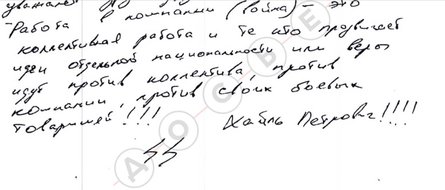 уважал
Работа в компании (война) - это
коллективная работа и те кто продвигает
идеи отдельной национальности или веры
идут против коллектива, против
компании, против своих боевых
товарищей!!!!
Хайль Петрович!!!!
ϟϟ
ДОСЬЕ